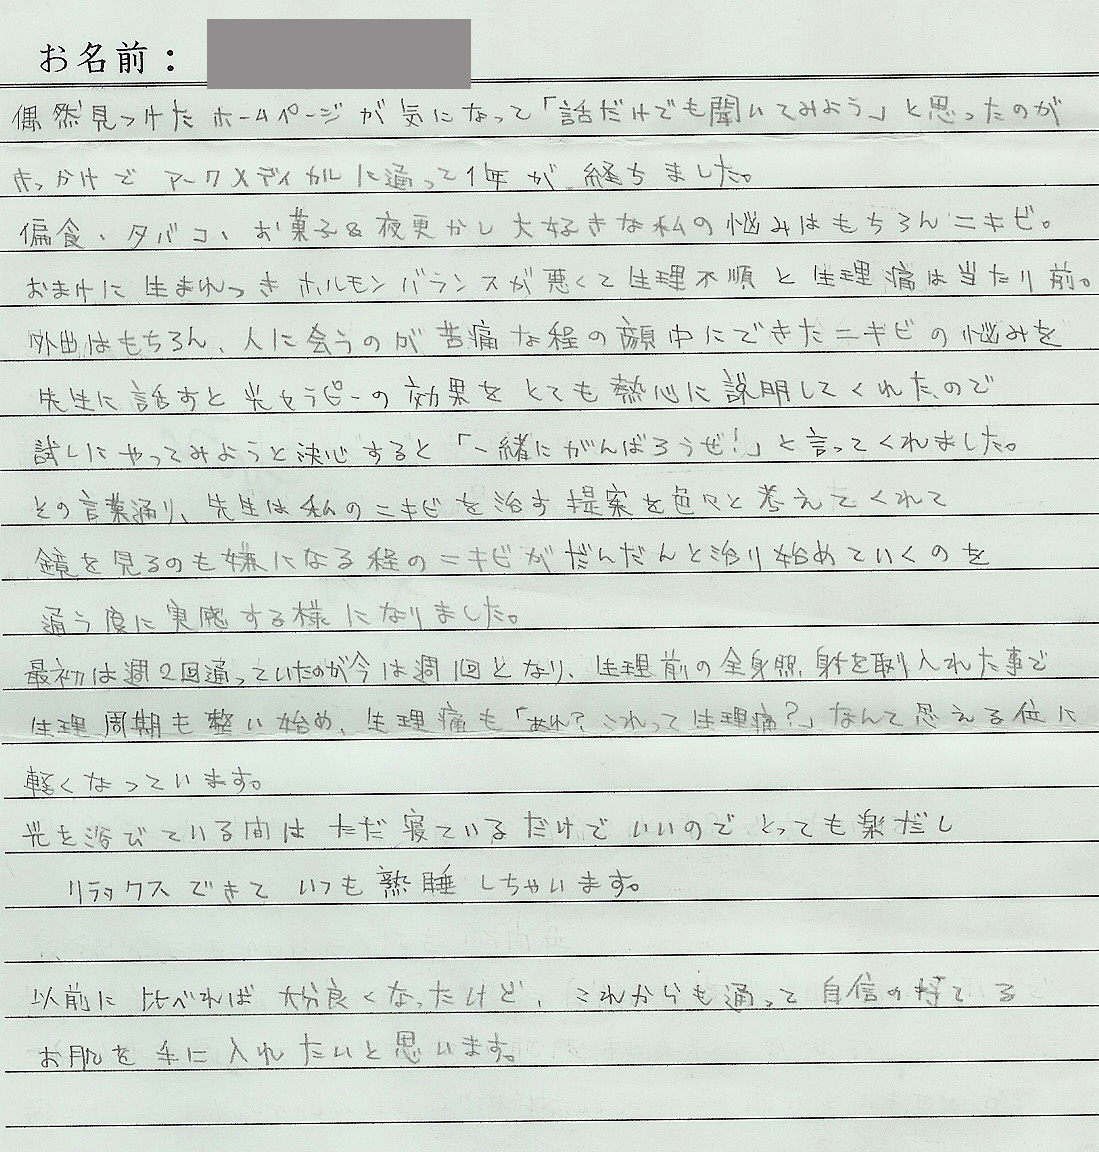 お名前：
偶然見つけたホームページが気になって「話だけでも聞いてみよう」と思ったのが
きっかけで アークメディカルに通って1年が、経ちました。
偏食、タバコ、お菓子&夜更かし大好きな私の悩みはもちろんニキビ。
おまけに生まれつきホルモンバランスが悪くて生理不順と生理痛は当たり前。
外出はもちろん、人に会うのが苦痛な程の顔中にできたニキビの悩みを
先生に話すと光セラピーの効果をとても熱心に説明してくれたので
試しにやってみようと決心すると「一緒にがんばろうぜ!」と言ってくれました。
その言葉通り、先生は私のニキビを治す提案を色々と考えてくれて
鏡を見るのも嫌になる程のニキビがだんだんと治り始めていくのを
通う度に実感する様になりました。
最初は週2回通っていたのが今は週1回となり、生理前の全身照射を取り入れた事で
生理周期も整い始め、生理痛も「あれ?これって生理痛?」なんて思える位に
軽くなっています。
光を浴びている間はただ寝ているだけでいいのでとっても楽だし
リラックスできていつも熟睡しちゃいます。
以前に比べれば大分良くなったけど、これからも通って自信の持てる
お肌を手に入れたいと思います。